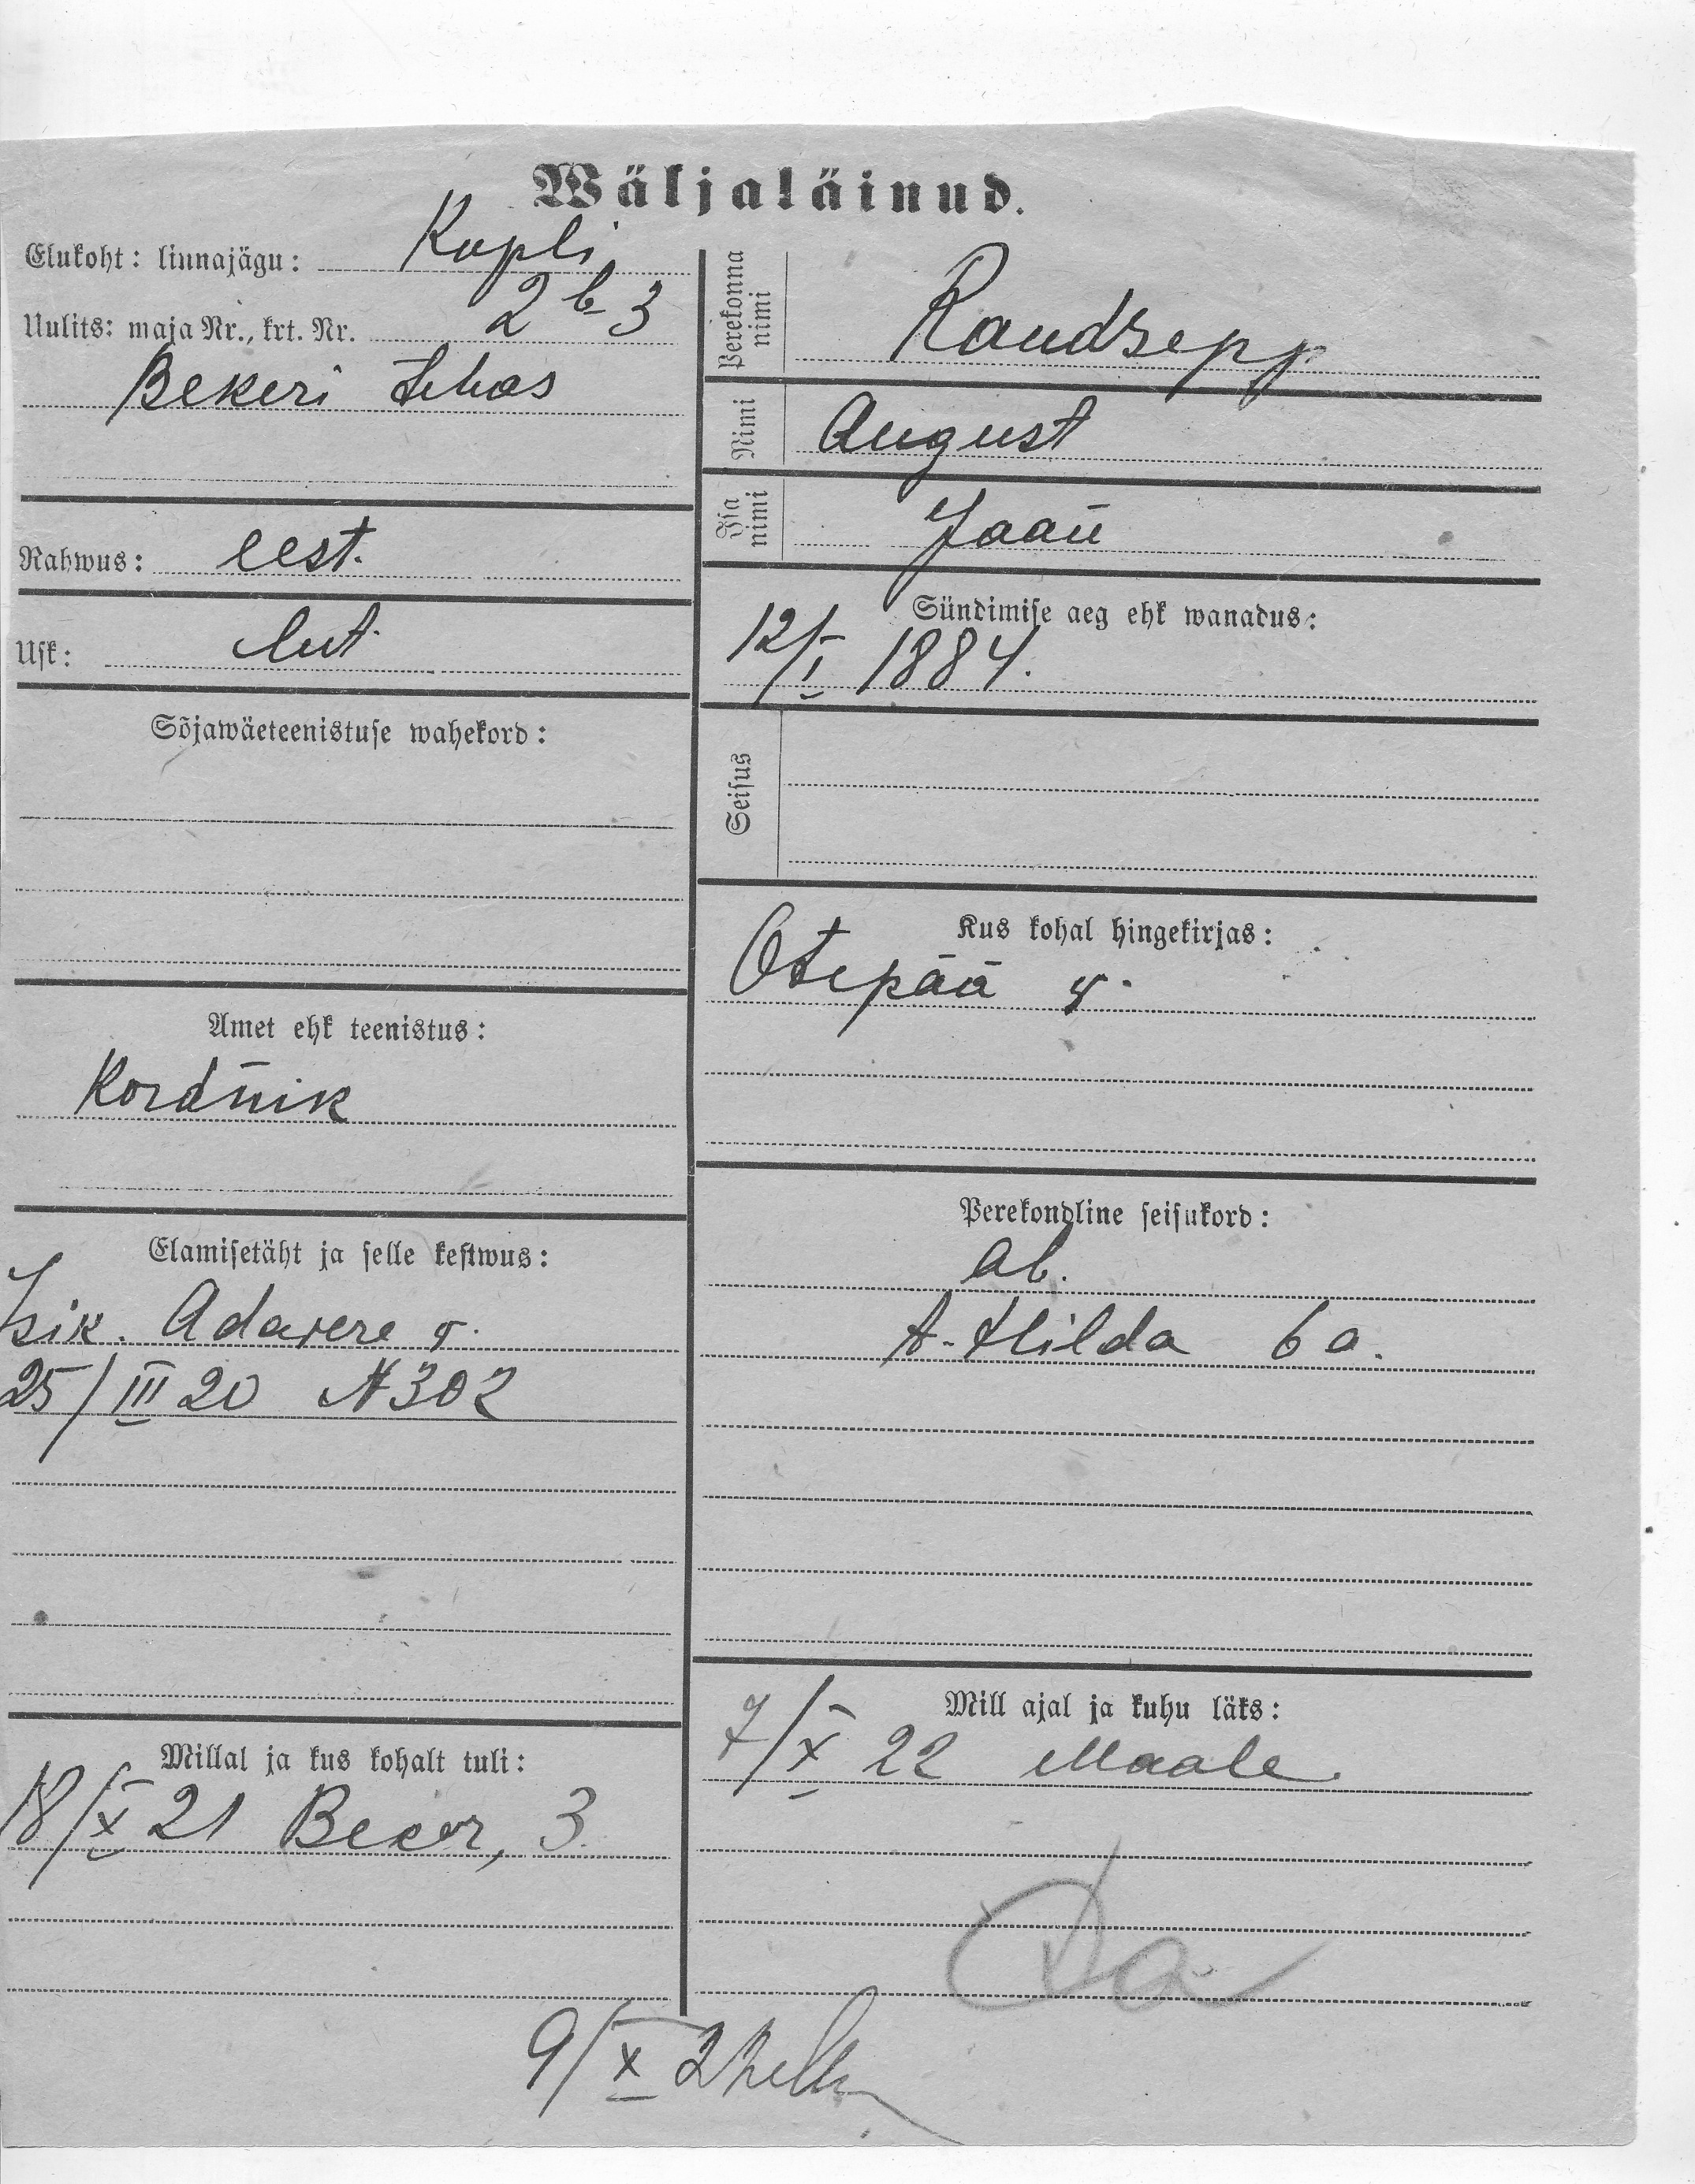 Wäljaläinud.
Elukoht: linnajägu: Kopli
Uulits: maja Nr., krt. Nr. 2b-3
Bekeri tehas
Rahwus: eest.
Usk: lut.
Sõjawäeteenistuse wahekord:
Amet ehk teenistus:
Kordnik
Elamisetäht ja selle kestwus:
Isik. Adavere v.
25/III 20 N 302
Millal ja kus kohalt tuli:
18/X 21 Beker, 3
Perekonna nimi Raudsepp
Nimi August
Isa nimi Jaan
Sündimise aeg ehk wanadus:
12/I 1884.
Seisus
Kus kohal hingekirjas:
Otepää v.
Perekondline seisukord:
ab.
t. Hilda 6 a.
Mill ajal ja kuhu läks:
7/X 22 Maale
9/X 22